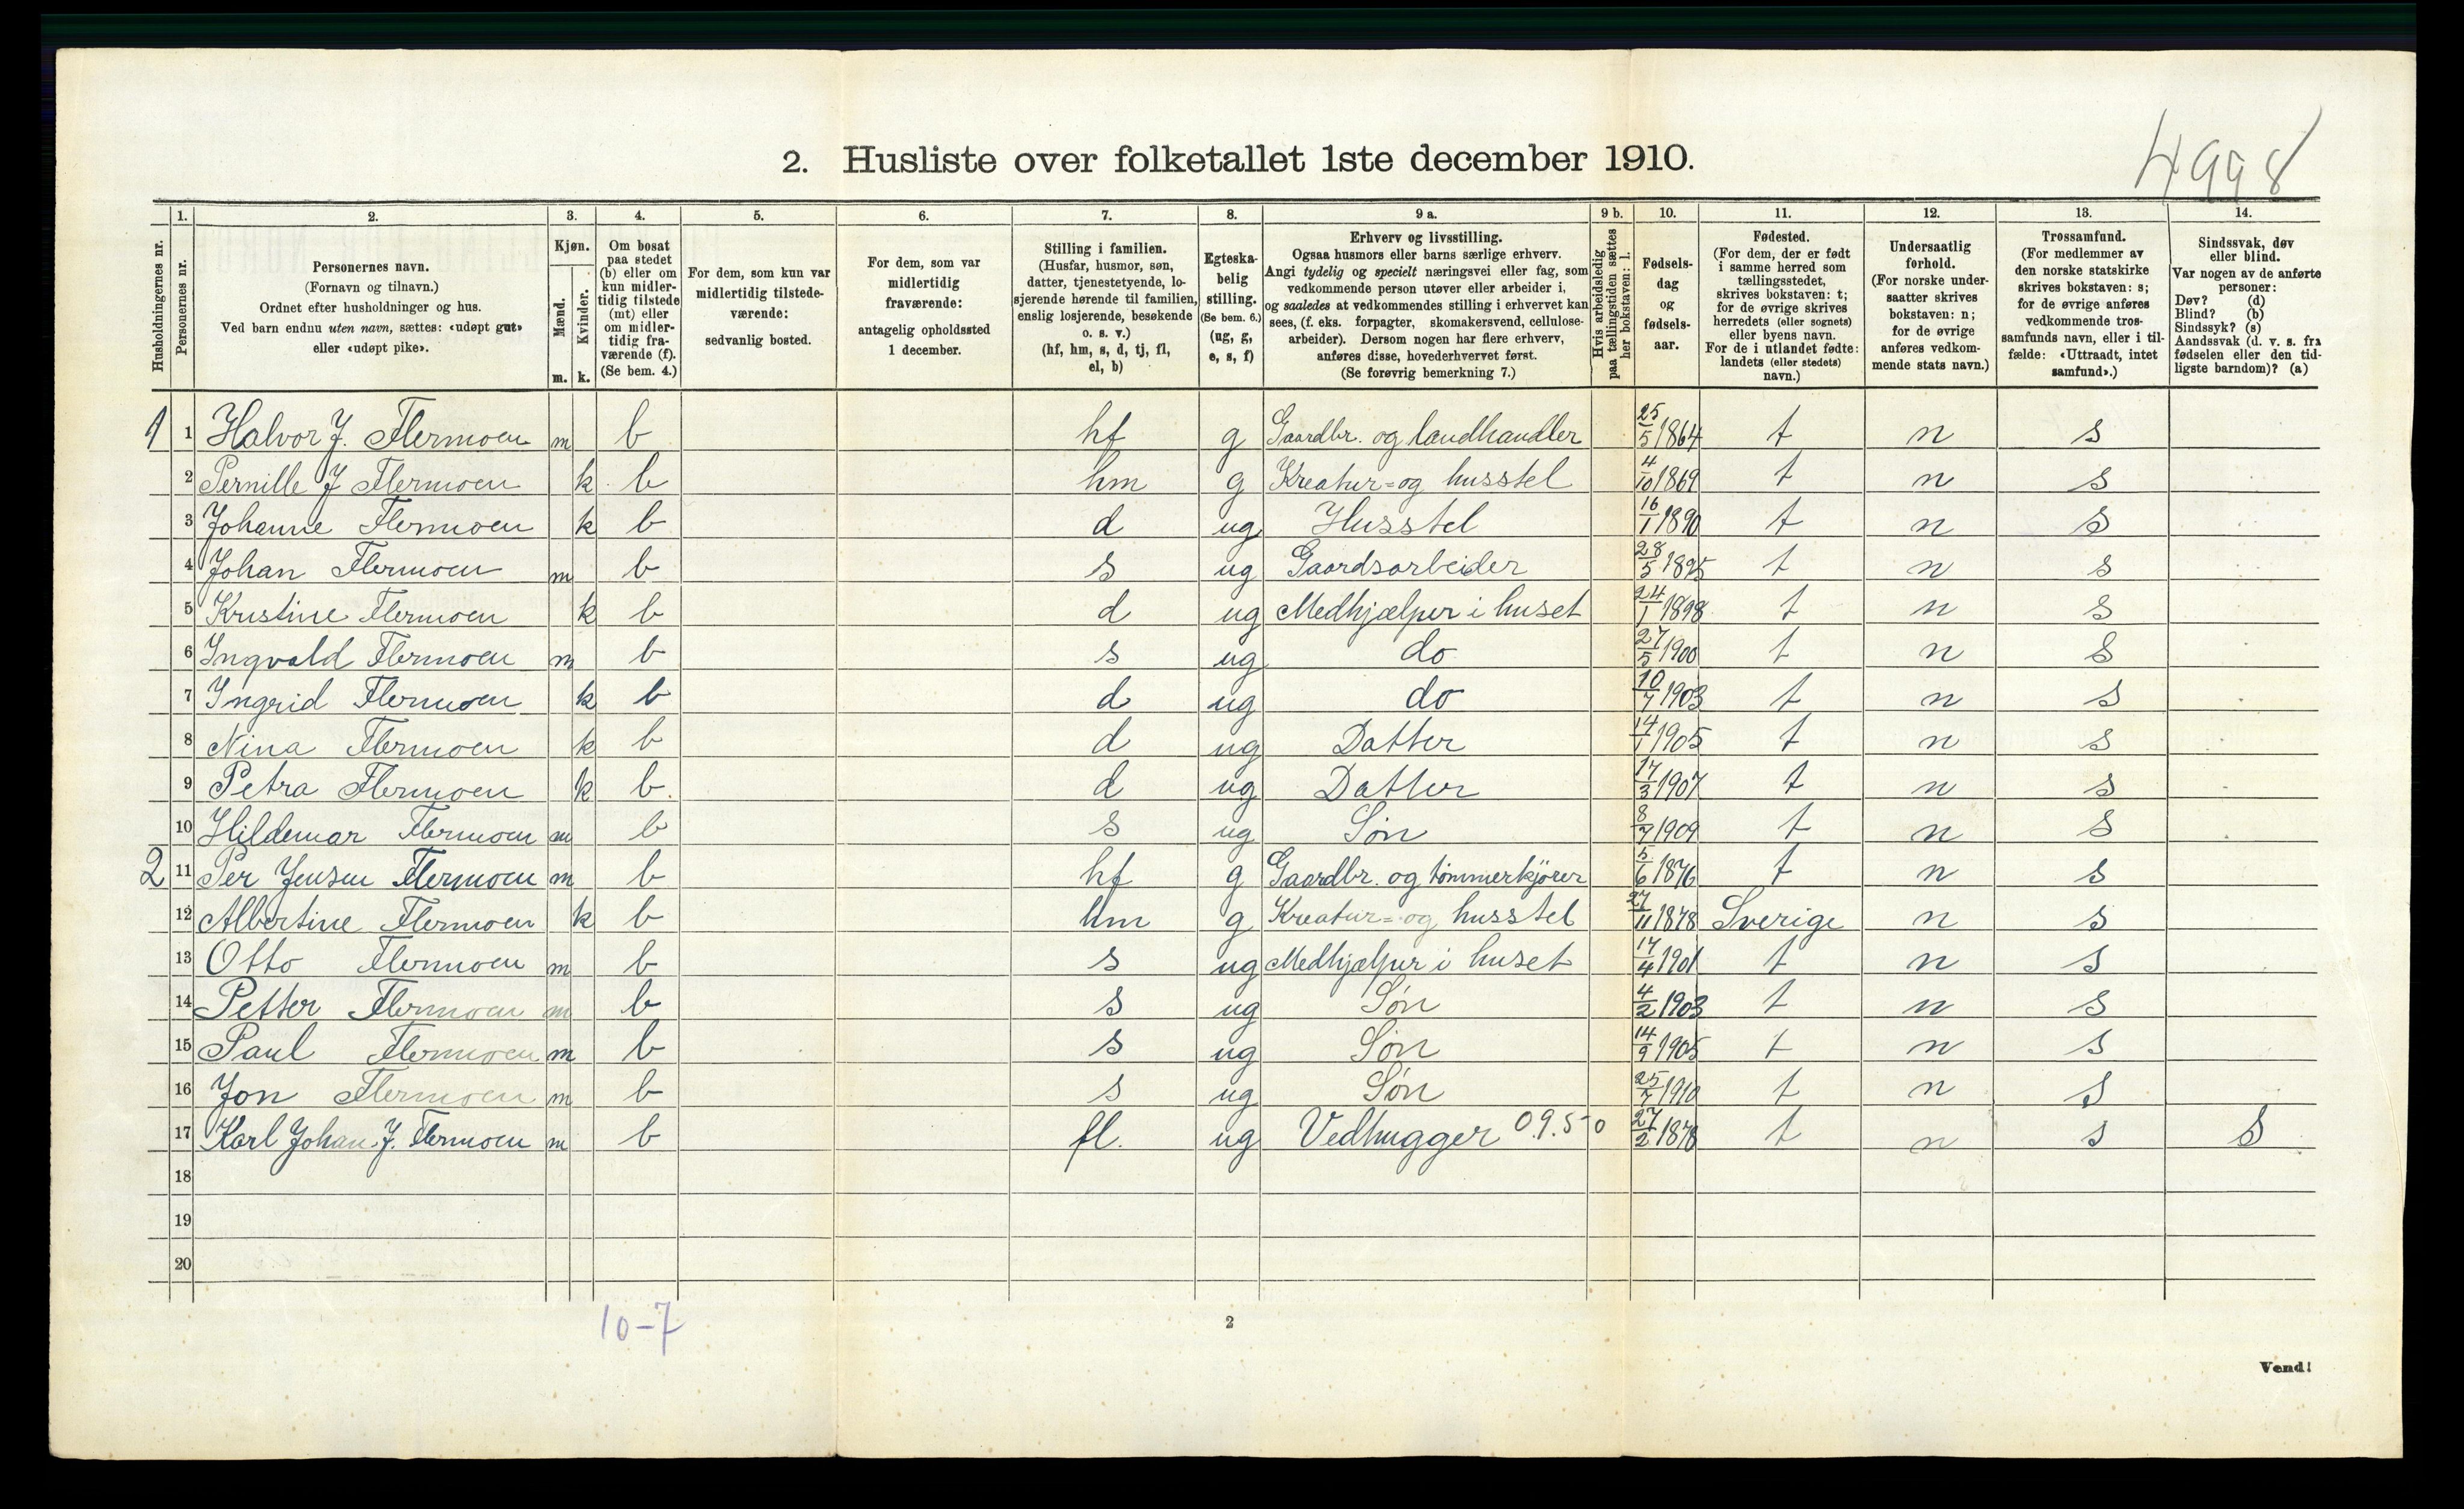 2. Husliste over folketallet 1ste december 1910.
4998
Husholdningernes nr.
1.
Personernes nr.
2.
Personernes navn.
(Fornavn og tilnavn.)
Ordnet efter husholdninger og hus.
Ved barn endnu uten navn, sættes: «udøpt gut»
eller «udøpt pike».
3.
Kjøn.
Mænd.
Kvinder.
m.
k.
4.
Om bosat
paa stedet
(b) eller om
kun midler-
tidig tilstede
(mt) eller
om midler-
tidig fra-
værende (f).
(Se bem. 4.)
5.
For dem, som kun var
midlertidig tilstede-
værende:
sedvanlig bosted.
6.
For dem, som var
midlertidig
fraværende:
antagelig opholdssted
1 december.
7.
Stilling i familien.
(Husfar, husmor, søn,
datter, tjenestetyende, lo-
sjerende hørende til familien,
enslig losjerende, besøkende
o. s. v.)
(hf, hm, s, d, tj, fl,
el, b)
8.
Egteska-
belig
stilling.
(Se bem. 6.)
(ug, g,
e, s, f)
9 a.
Erhverv og livsstilling.
Ogsaa husmors eller barns særlige erhverv.
Angi tydelig og specielt næringsvei eller fag, som
vedkommende person utøver eller arbeider i,
og saaledes at vedkommendes stilling i erhvervet kan
sees, (f. eks. forpagter, skomakersvend, cellulose-
arbeider). Dersom nogen har flere erhverv,
anføres disse, hovederhvervet først.
(Se forøvrig bemerkning 7.)
9 b.
Hvis arbeidsledig
paa tællingstiden sættes
her bokstaven: l.
10.
Fødsels-
dag
og
fødsels-
aar.
11.
Fødested.
(For dem, der er født
i samme herred som
tællingsstedet,
skrives bokstaven: t;
for de øvrige skrives
herredets (eller sognets)
eller byens navn.
For de i utlandet fødte:
landets (eller stedets)
navn.)
12.
Undersaatlig
forhold.
(For norske under-
saatter skrives
bokstaven: n;
for de øvrige
anføres vedkom-
mende stats navn.)
13.
Trossamfund.
(For medlemmer av
den norske statskirke
skrives bokstaven: s;
for de øvrige anføres
vedkommende tros-
samfunds navn, eller i til-
fælde: «Uttraadt, intet
samfund».)
14.
Sindssvak, døv
eller blind.
Var nogen av de anførte
personer:
Døv? (d)
Blind? (b)
Sindssyk? (s)
Aandssvak (d. v. s. fra
fødselen eller den tid-
ligste barndom)? (a)
1 1 Halvor J. Flermoen m b hf g Gaardbr. og landhandler 25/5 1864 t n s
2 Pernille J Flermoen k b hm g Kreatur= og husstel 4/10 1869 t n s
3 Johanne Flermoen k b d ug Husstel 16/1 1890 t n s
4 Johan Flermoen m b s ug Gaardsarbeider 28/5 1895 t n s
5 Kristine Flermoen k b d ug Medhjælper i huset 24/1 1898 t n s
6 Ingvald Flermoen m b s ug do 27/5 1900 t n s
7 Ingrid Flermoen k b d ug do 10/7 1903 t n s
8 Nina Flermoen k b d ug Datter 14/1 1905 t n s
9 Petra Flermoen k b. d ug Datter 17/3 1907 t n s
10 Hildemar Flermoen m b s ug Søn 8/7 1909 t n s
2 11 Per Jensen Flermoen m b hf g Gaardbr. og tømmerkjører 5/6 1876 t n s
12 Albertine Flermoen k b hm g Kreatur= og husstel 27/11 1878 Sverige n s
13 Otto Flermoen m b s ug Medhjælper i huset 17/4 1901 t n s
14 Petter Flermoen m b s ug Søn 4/2 1903 t n s
15 Paul Flermoen m b s ug Søn 14/9 1905 t n s
16 Jon Flermoen m b s ug Søn 25/7 1910 t n s
17 Karl Johan J. Flermoen m b fl. ug Vedhugger 0.9.5-0 27/2 1878 t n s S
18
19
20
10-7
2
Vend!